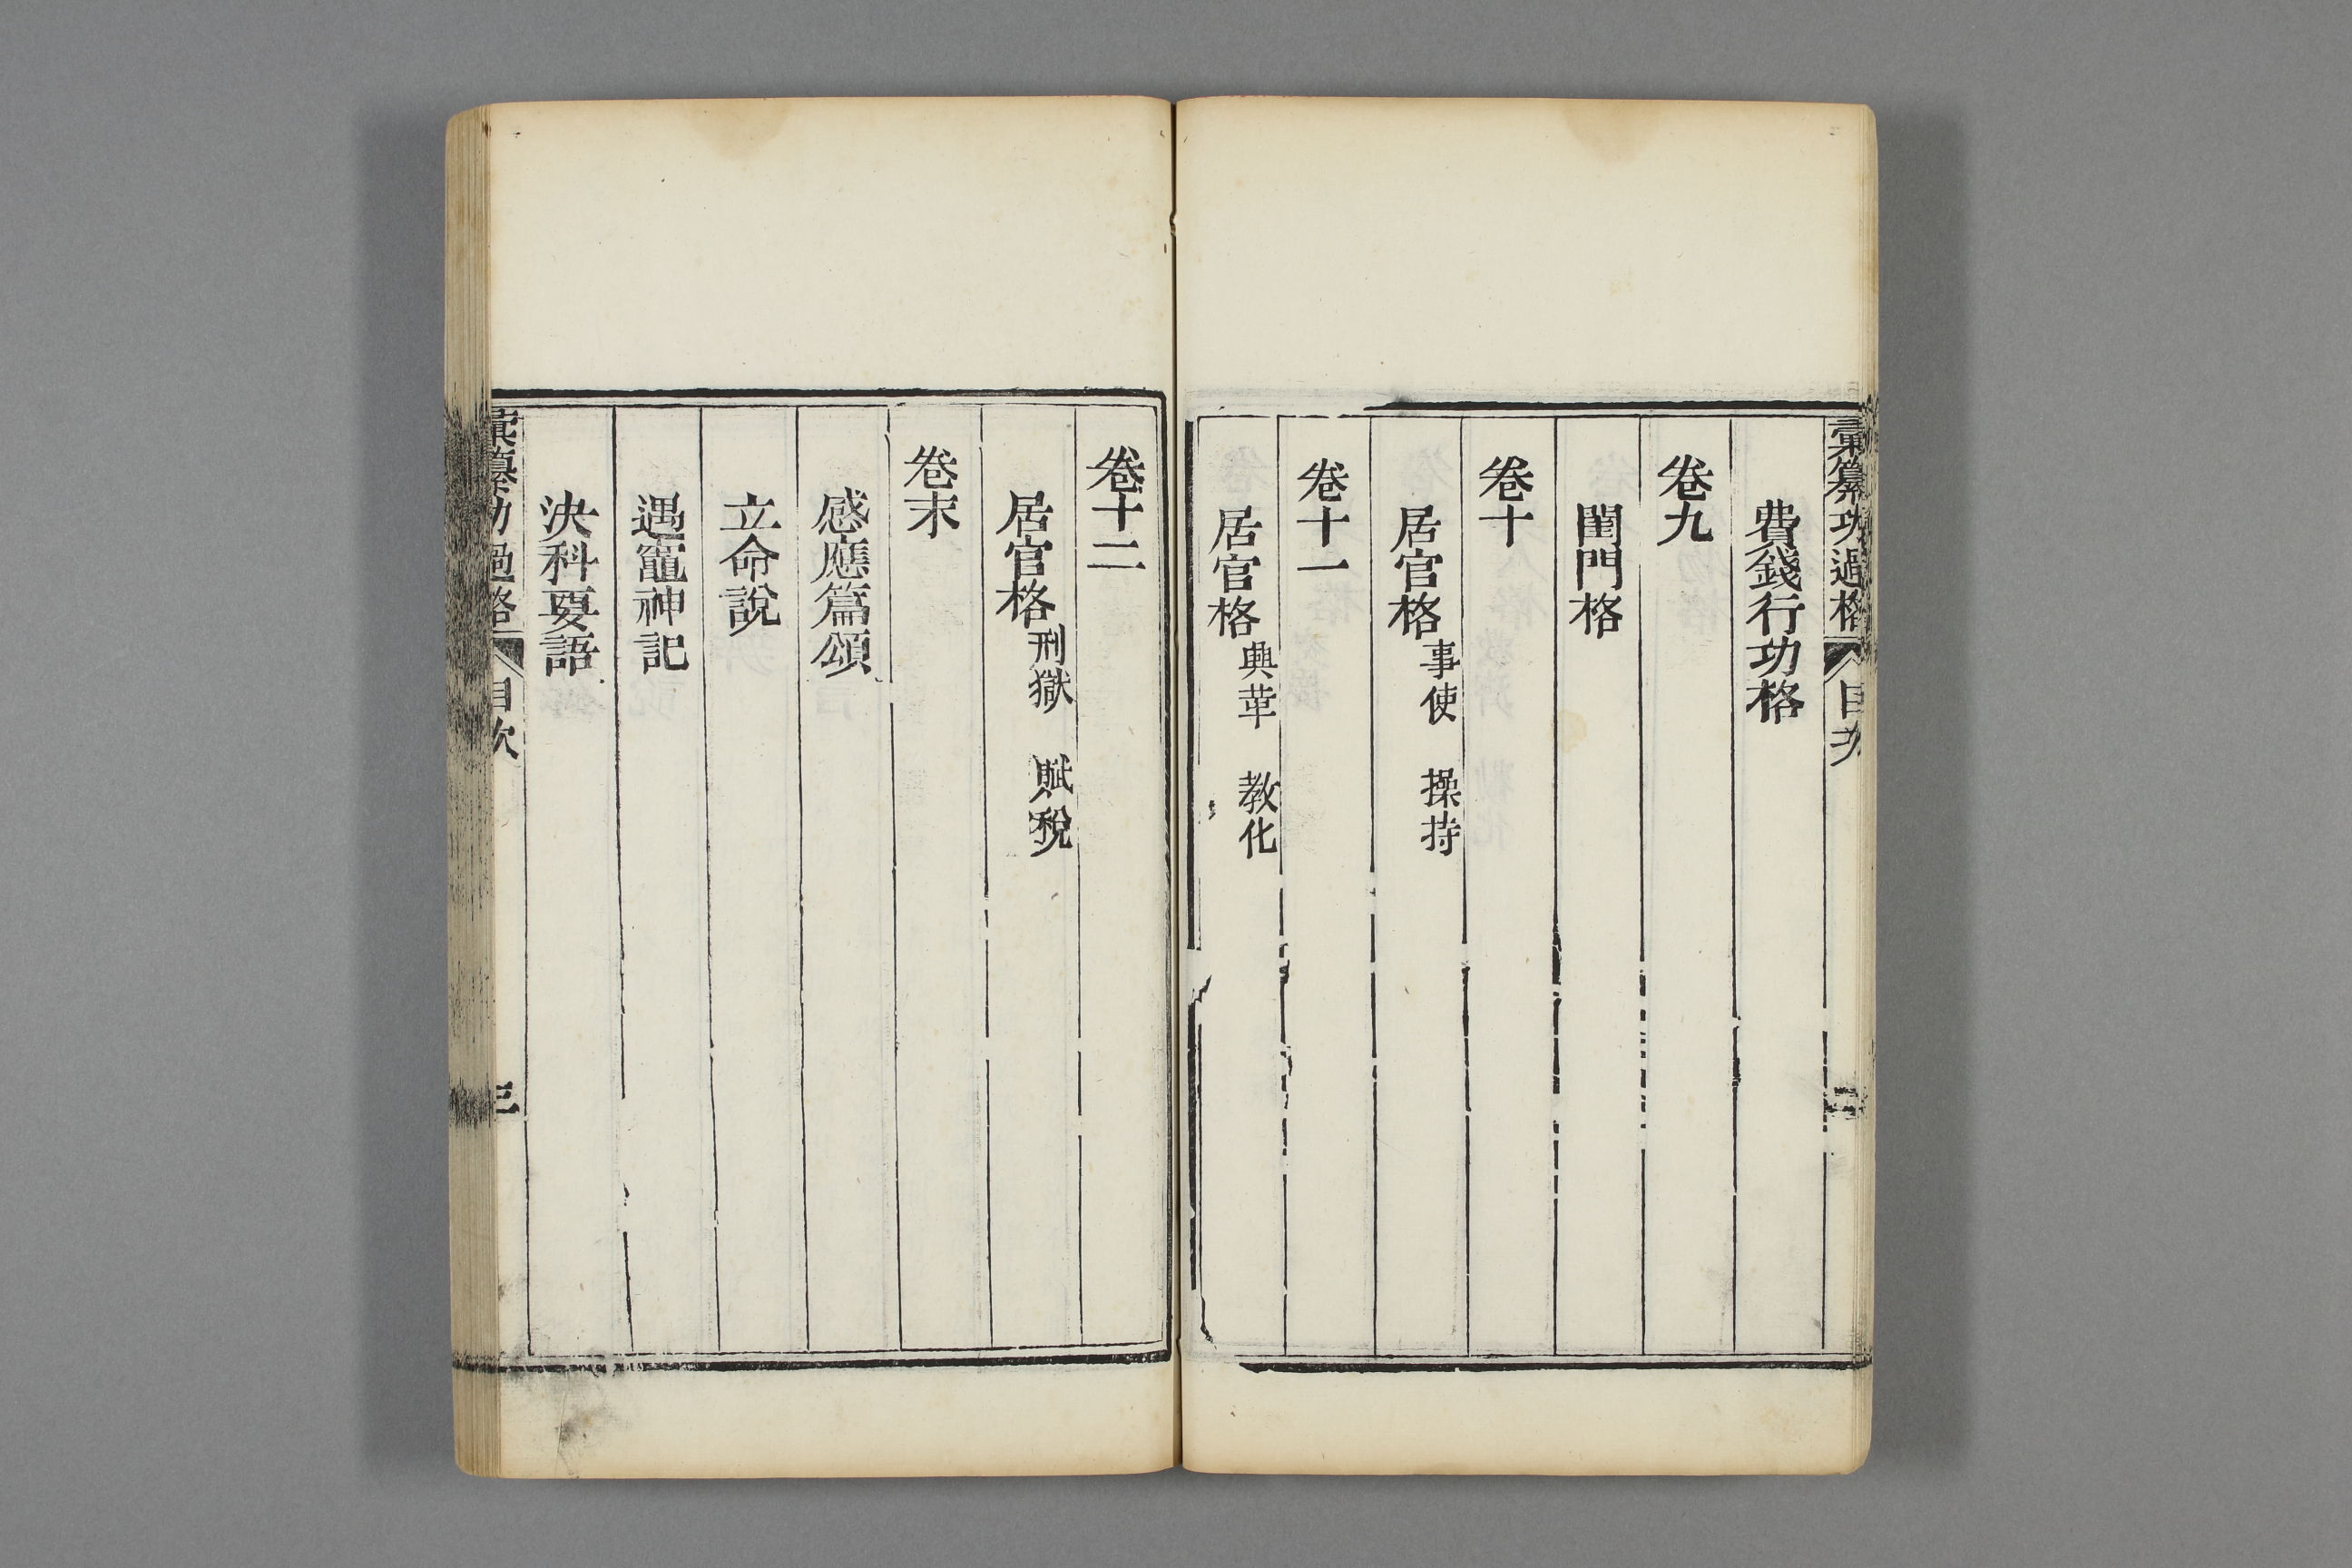 彙纂功過格 目次 二
費錢行功格
卷九
閨門格
卷十
居官格 事使 操持
卷十一
居官格 興革 教化
卷十二
居官格 刑獄 賦稅
卷末
感應篇頌
立命說
遇竈神記
決科要語
彙纂功過格 目次 三